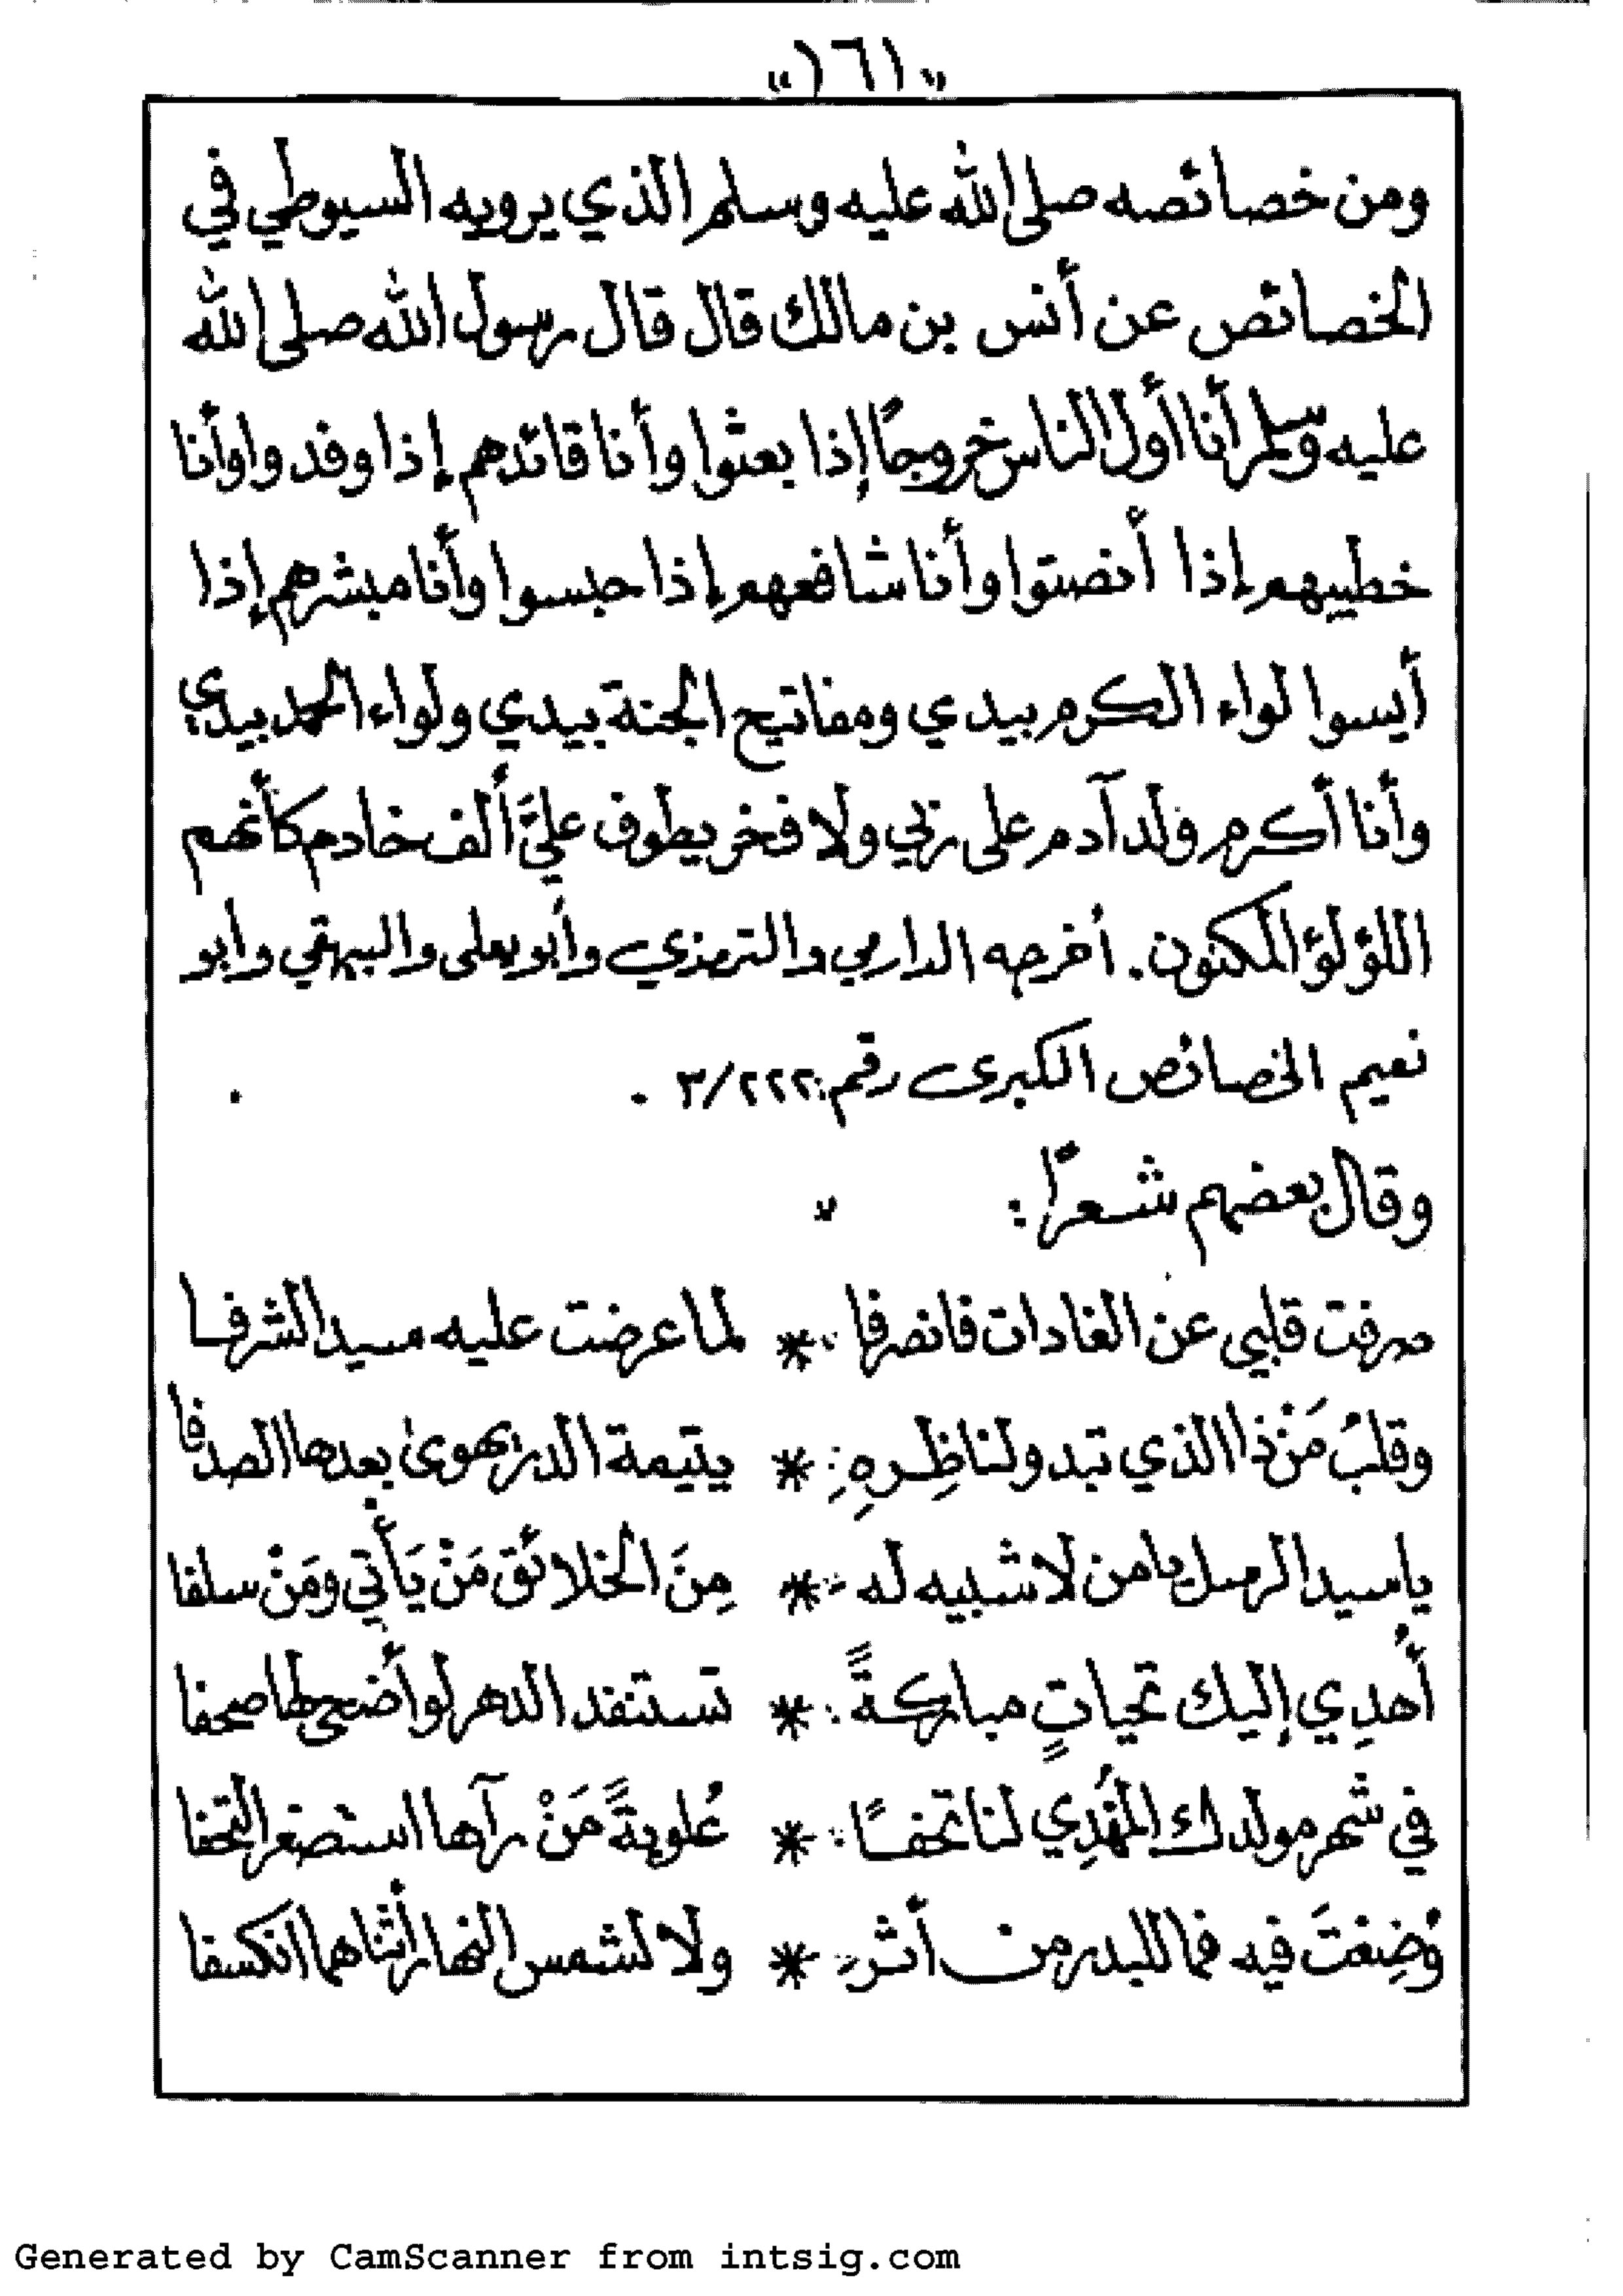 "١٦١"
ومن خصائصه صلى الله عليه وسلم الذي يرويه السيوطي في
الخصائص عن أنس بن مالك قال قال رسول الله صلى الله
عليه وسلم أنا أول الناس خروجًا إذا بعثوا وأنا قائدهم إذا وفدوا وأنا
خطيبهم إذا أنصتوا وأنا شافعهم إذا حبسوا وأنا مبشرهم إذا
أيسوا لواء الكرم بيدي ومفاتيح الجنة بيدي ولواء الحمد بيدي
وأنا أكرم ولد آدم على ربي ولا فخر يطوف عليَّ ألف خادم كأنهم
اللؤلؤ المكنون. أخرجه الدارمي والترمذي وأبو يعلى والبيهقي وأبو
نعيم الخصائص الكبرى رقم ٣/٢٢٢ .
وقال بعضهم شعرًا :
صرفت قلبي عن الغادات فانصرفا * لما عرضت عليه سيد الشرفا
وقلبُ مَنْ ذا الذي تبدو لناظِرهِ * يتيمة الدر يهوى بعدها الصدفا
يا سيد الرسل يا من لا شبيه له * مِنَ الخلائق مَنْ يَأتي ومَنْ سلفا
أُهدِي إليك تحياتٍ مباركةً * تستنفد الدهر لو أضحى لها صحفا
في شهر مولدك المُهْدِي لنا تحفًا * عُلويةً مَنْ رآها استصغر التحفا
وُضِعْتَ فيه فما للبدر من أثر * ولا لشمس النهار أثناهما انكسفا
Generated by CamScanner from intsig.com